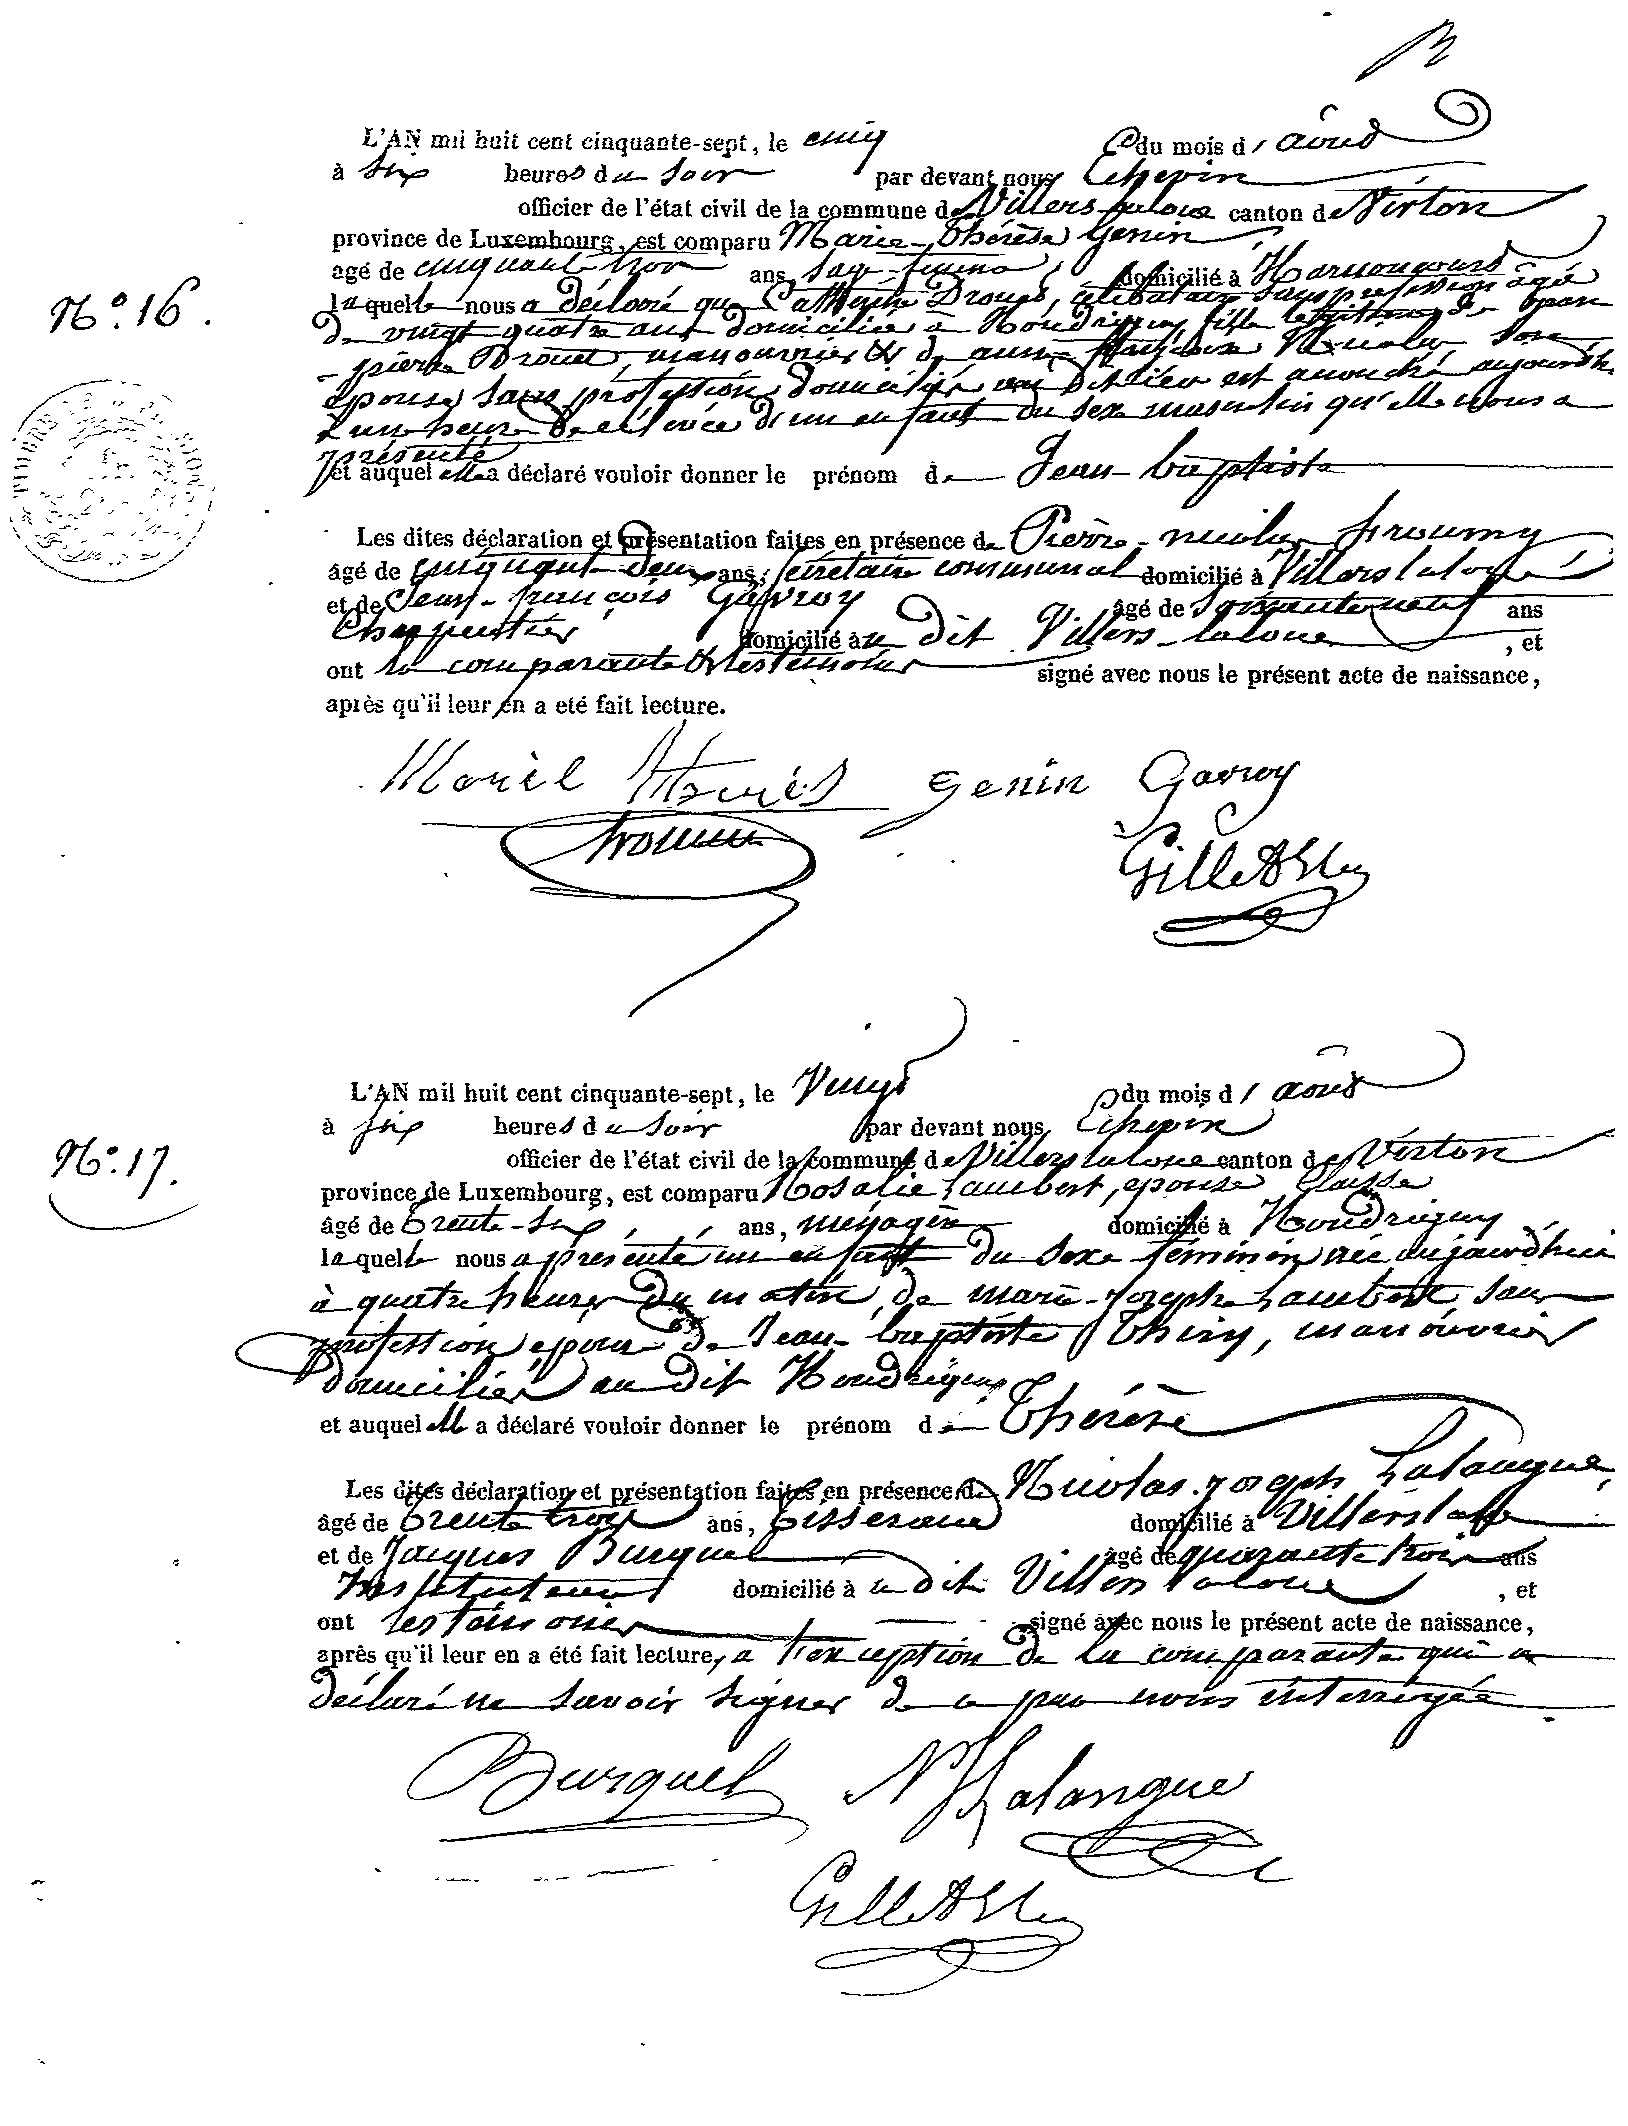 L'AN mil huit cent cinquante-sept, le cinq du mois d' août
à six heures du soir par devant nous Echevin
officier de l'état civil de la commune de Villers-laloue canton de Virton
province de Luxembourg, est comparu Marie-Thérèse Genin
agé de cinquante trois ans, sage-femme domicilié à Harnoncourt
N°. 16.
laquelle nous a déclaré que Drouet, célibataire sans profession âgée
de vingt quatre ans domiciliée à Houdrigny, fille légitime de
pierre Drouet, manouvrier & de son
épouse sans profession domiciliés au dit lieu est accouchée aujourdh.
à une heure d'un enfant du sexe masculin qu'elle nous a
présenté
et auquel elle a déclaré vouloir donner le prénom de Jean-baptiste
Les dites déclaration et présentation faites en présence de Pierre-nicolas
âgé de cinquante-deux ans, secrétaire communal domicilié à Villerslaloue
et de Jean-françois Gavroy âgé de soixante neuf ans
Charpentier domicilié au dit Villers-laloue, et
ont la comparante & les témoins signé avec nous le présent acte de naissance,
après qu'il leur en a eté fait lecture.
Marie Genin Gavroy
L'AN mil huit cent cinquante-sept, le Vingt du mois d' août
à six heures du soir par devant nous Echevin
N°. 17.
officier de l'état civil de la commune de Villerslaloue canton de Virton
province de Luxembourg, est comparu Rosalie Lambert, épouse Claisse
âgé de Trente-six ans, ménagère domicilié à Houdrigny
laquelle nous a présenté un enfant du sexe féminin née aujourd'hui
à quatre heures du matin, de marie-Joseph Lambert, sans
profession épouse de Jean-baptiste Thiry, manouvrier
domiciliés au dit Houdrigny
et auquel elle a déclaré vouloir donner le prénom de Thérèse
Les dites déclaration et présentation faites en présence de Nicolas-Joseph Lalangue,
âgé de Trente trois ans, Tisserand domicilié à
et de Jacques Burquel âgé de quarante trois ans
Instituteur domicilié au dit Villers laloue, et
ont les témoins signé avec nous le présent acte de naissance,
après qu'il leur en a été fait lecture, à l'exception de la comparante qui a
déclaré ne savoir signer de ce par nous interrogée
Burquel NJLalangue